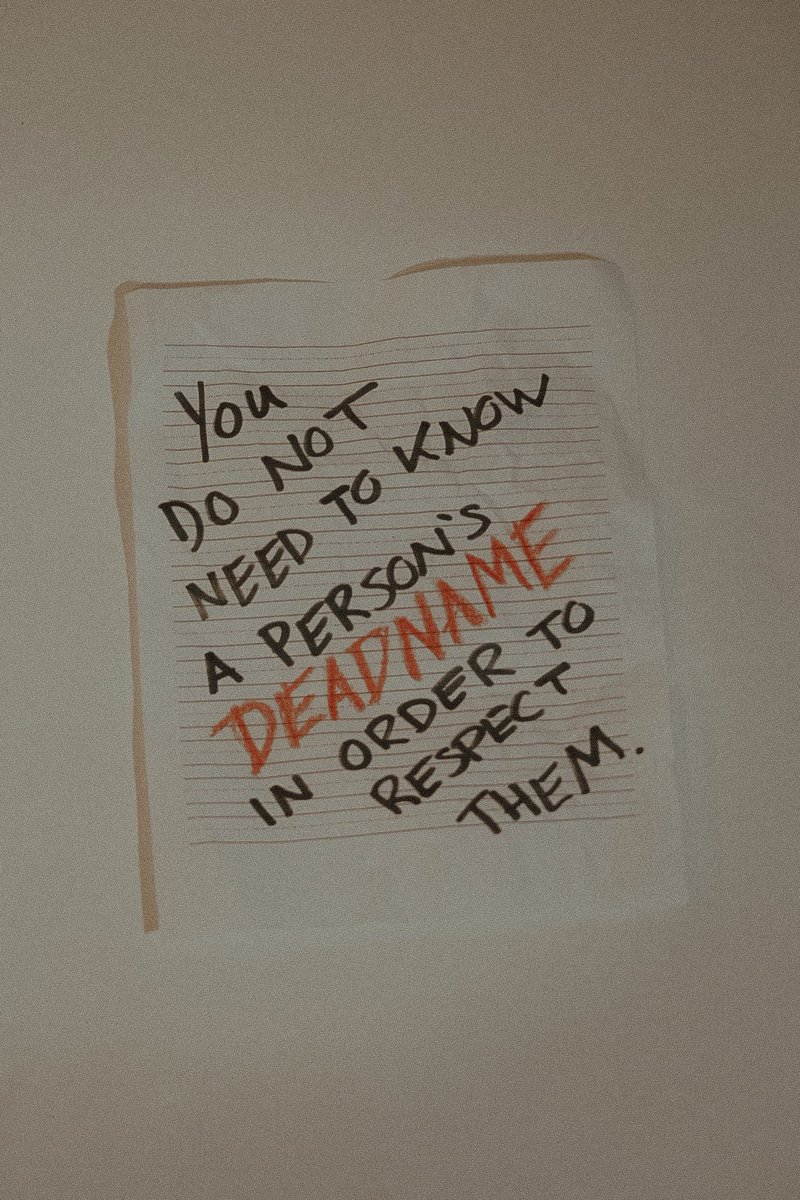 You
DO NOT
NEED TO KNOW
A PERSON'S
DEADNAME
IN ORDER TO
RESPECT
THEM.